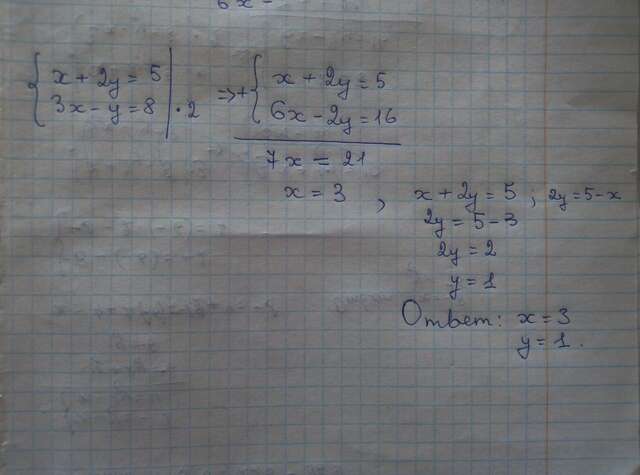 6x -
{ x + 2y = 5
3x - y = 8 | · 2
=> + { x + 2y = 5
6x - 2y = 16
7x = 21
x = 3 ,
x + 2y = 5 ; 2y = 5 - x
2y = 5 - 3
2y = 2
y = 1
Ответ: x = 3
y = 1 .